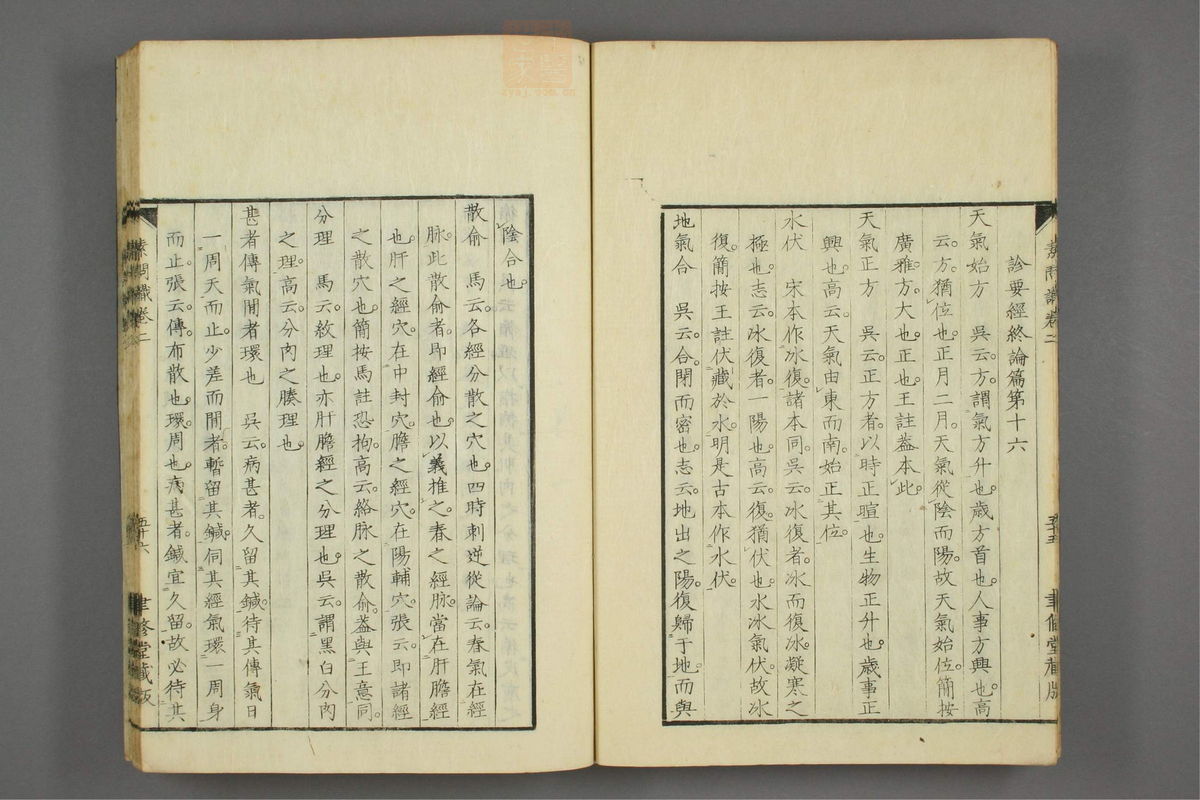 診要經終論篇第十六
天氣始方　吳云方謂氣方升也歲方首也人事方興也高
云方猶位也正月二月天氣從陰而陽故天氣始位簡按
廣雅方大也正也王註蓋本此
天氣正方　吳云正方者以時正暄也生物正升也歲事正
興也高云天氣由東而南始正其位
水伏　宋本作冰復諸本同吳云冰復者冰而復冰凝寒之
極也志云冰復者一陽也高云復猶伏也水冰氣伏故冰
復簡按王註伏藏於水明是古本作水伏
地氣合　吳云合閉而密也志云地出之陽復歸于地而與
素問識卷二　五十五　聿修堂藏版
陰合也
散俞　馬云各經分散之穴也四時刺逆從論云春氣在經
脉此散俞者即經俞也以義推之春之經脉當在肝膽經
也肝之經穴在中封穴膽之經穴在陽輔穴張云即諸經
之散穴也簡按馬註恐拘高云絡脉之散俞蓋與王意同
分理　馬云紋理也亦肝膽經之分理也吳云謂黑白分肉
之理高云分肉之腠理也
甚者傳氣閒者環也　吳云病甚者久留其鍼待其傳氣日
一周天而止少差而閒者暫留其鍼伺其經氣環一周身
而止張云傳布散也環周也病甚者鍼宜久留故必待其
素問識卷二　五十六　聿修堂藏版